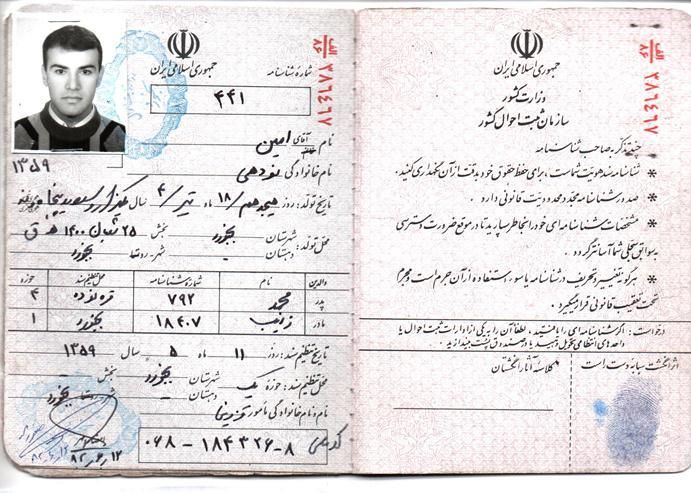 جمهوری اسلامی ایران
شمارهٔ شناسنامه
۴۴۱
الف/۸۶ ۳۸۱۴۱۷
نام آقای امین
۱۳۵۹
نام خانوادگی نودهی
تاریخ تولد: روز هیجدهم/۱۸ ماه تیر/۴ سال
۲۵ شعبان ۱۴۰۰ ه ق
محل تولد: شهرستان بجنورد بخش
دهستان شهر- روستا بجنورد
والدین نام شمارهٔ شناسنامه محل تنظیم سند حوزه
پدر محمد ۷۹۲ قره نوده ۴
مادر زینب ۱۸۴۰۷ بجنورد ۱
تاریخ تنظیم سند: روز ۱۱ ماه ۵ سال ۱۳۵۹
محل تنظیم سند: حوزه یک شهرستان بجنورد بخش
دهستان بجنورد
نام و نام خانوادگی مأمور
۰۶۸-۱۸۴۳۲۶-۸
جمهوری اسلامی ایران
وزارت کشور
سازمان ثبت احوال کشور
الف/۸۶ ۳۸۱۴۱۷
چند تذکر به صاحب شناسنامه
* شناسنامه سند هویت شماست، برای حفظ حقوق خود بدقت از آن نگهداری کنید.
* صدور شناسنامه مجدد محدودیت قانونی دارد.
* مشخصات شناسنامه ای خود را بخاطر بسپارید تا در موقع ضرورت دسترسی
به سوابق سجلی شما آسانتر گردد.
* هرگونه تغییر و تحریف در شناسنامه یا سوء استفاده از آن جرم است و مجرم
تحت تعقیب قانونی قرار میگیرد.
درخواست: اگر شناسنامه ای را یافتید، لطفاً آن را به یکی از ادارات ثبت احوال یا
واحدهای انتظامی تحویل دهید یا در صندوق پست بیندازید.
اثر انگشت سبابه دست است
کلاسه آثار انگشتان